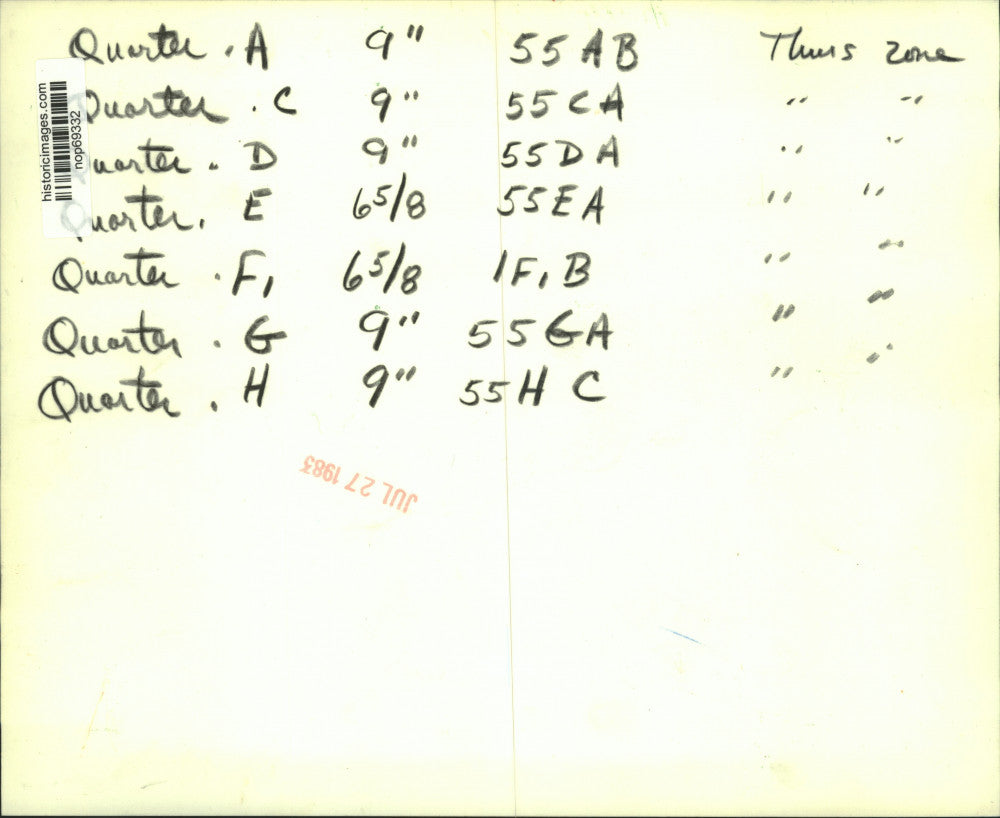 Quarter . A 9" 55 AB Thurs zone
Quarter . C 9" 55 CA " "
Quarter . D 9" 55 D A " "
Quarter . E 6 5/8 55 E A " "
Quarter . F, 6 5/8 1F, B " "
Quarter . G 9" 55 GA " "
Quarter . H 9" 55 H C " "
historicimages.com
nop69332
JUL 27 1983